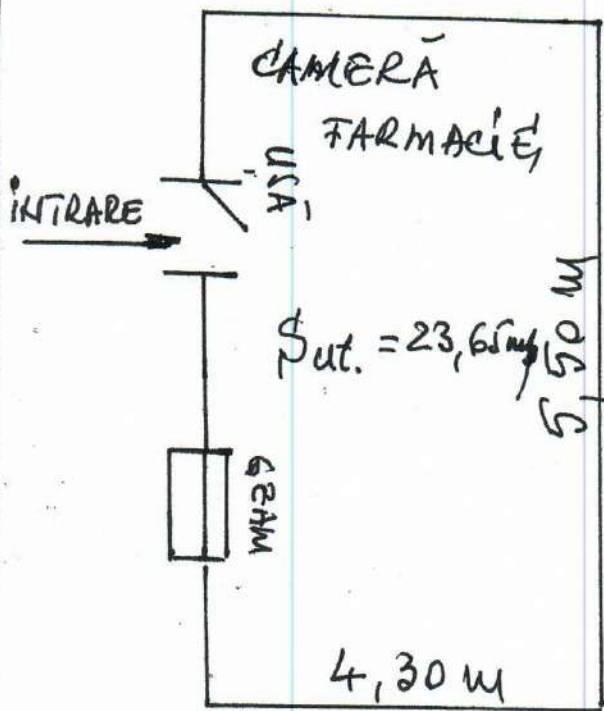 CAMERĂ
FARMACIE
UȘĂ
INTRARE
Sut. = 23,65 mp
5,50 m
GEAM
4,30 m